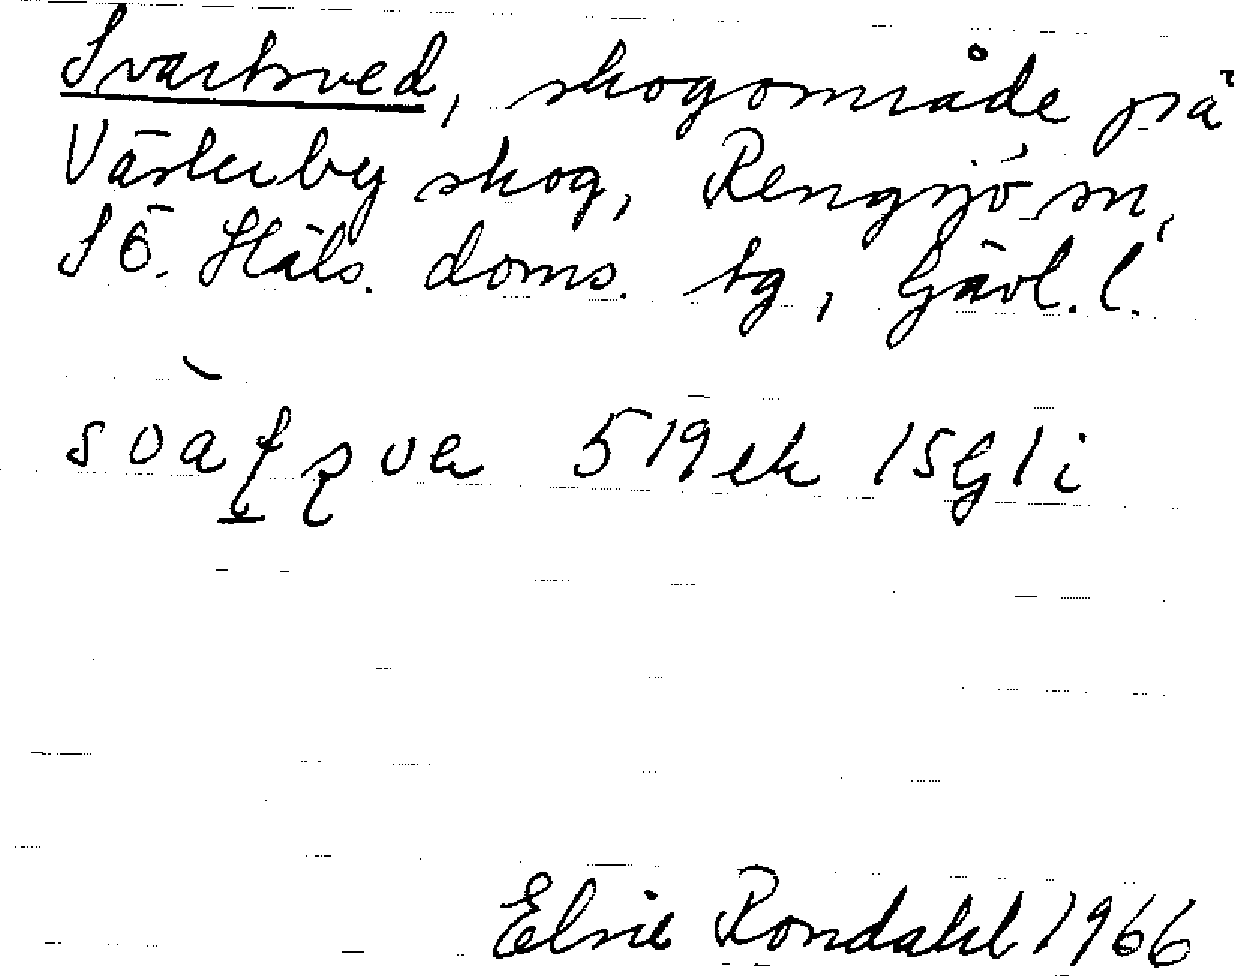 Svartsved, skogområde på
Västerby skog, Rengsjö sn,
SÖ. Häls. doms. tg, Gävl. l.
519 ek 15G1i
Elsie Rondahl 1966